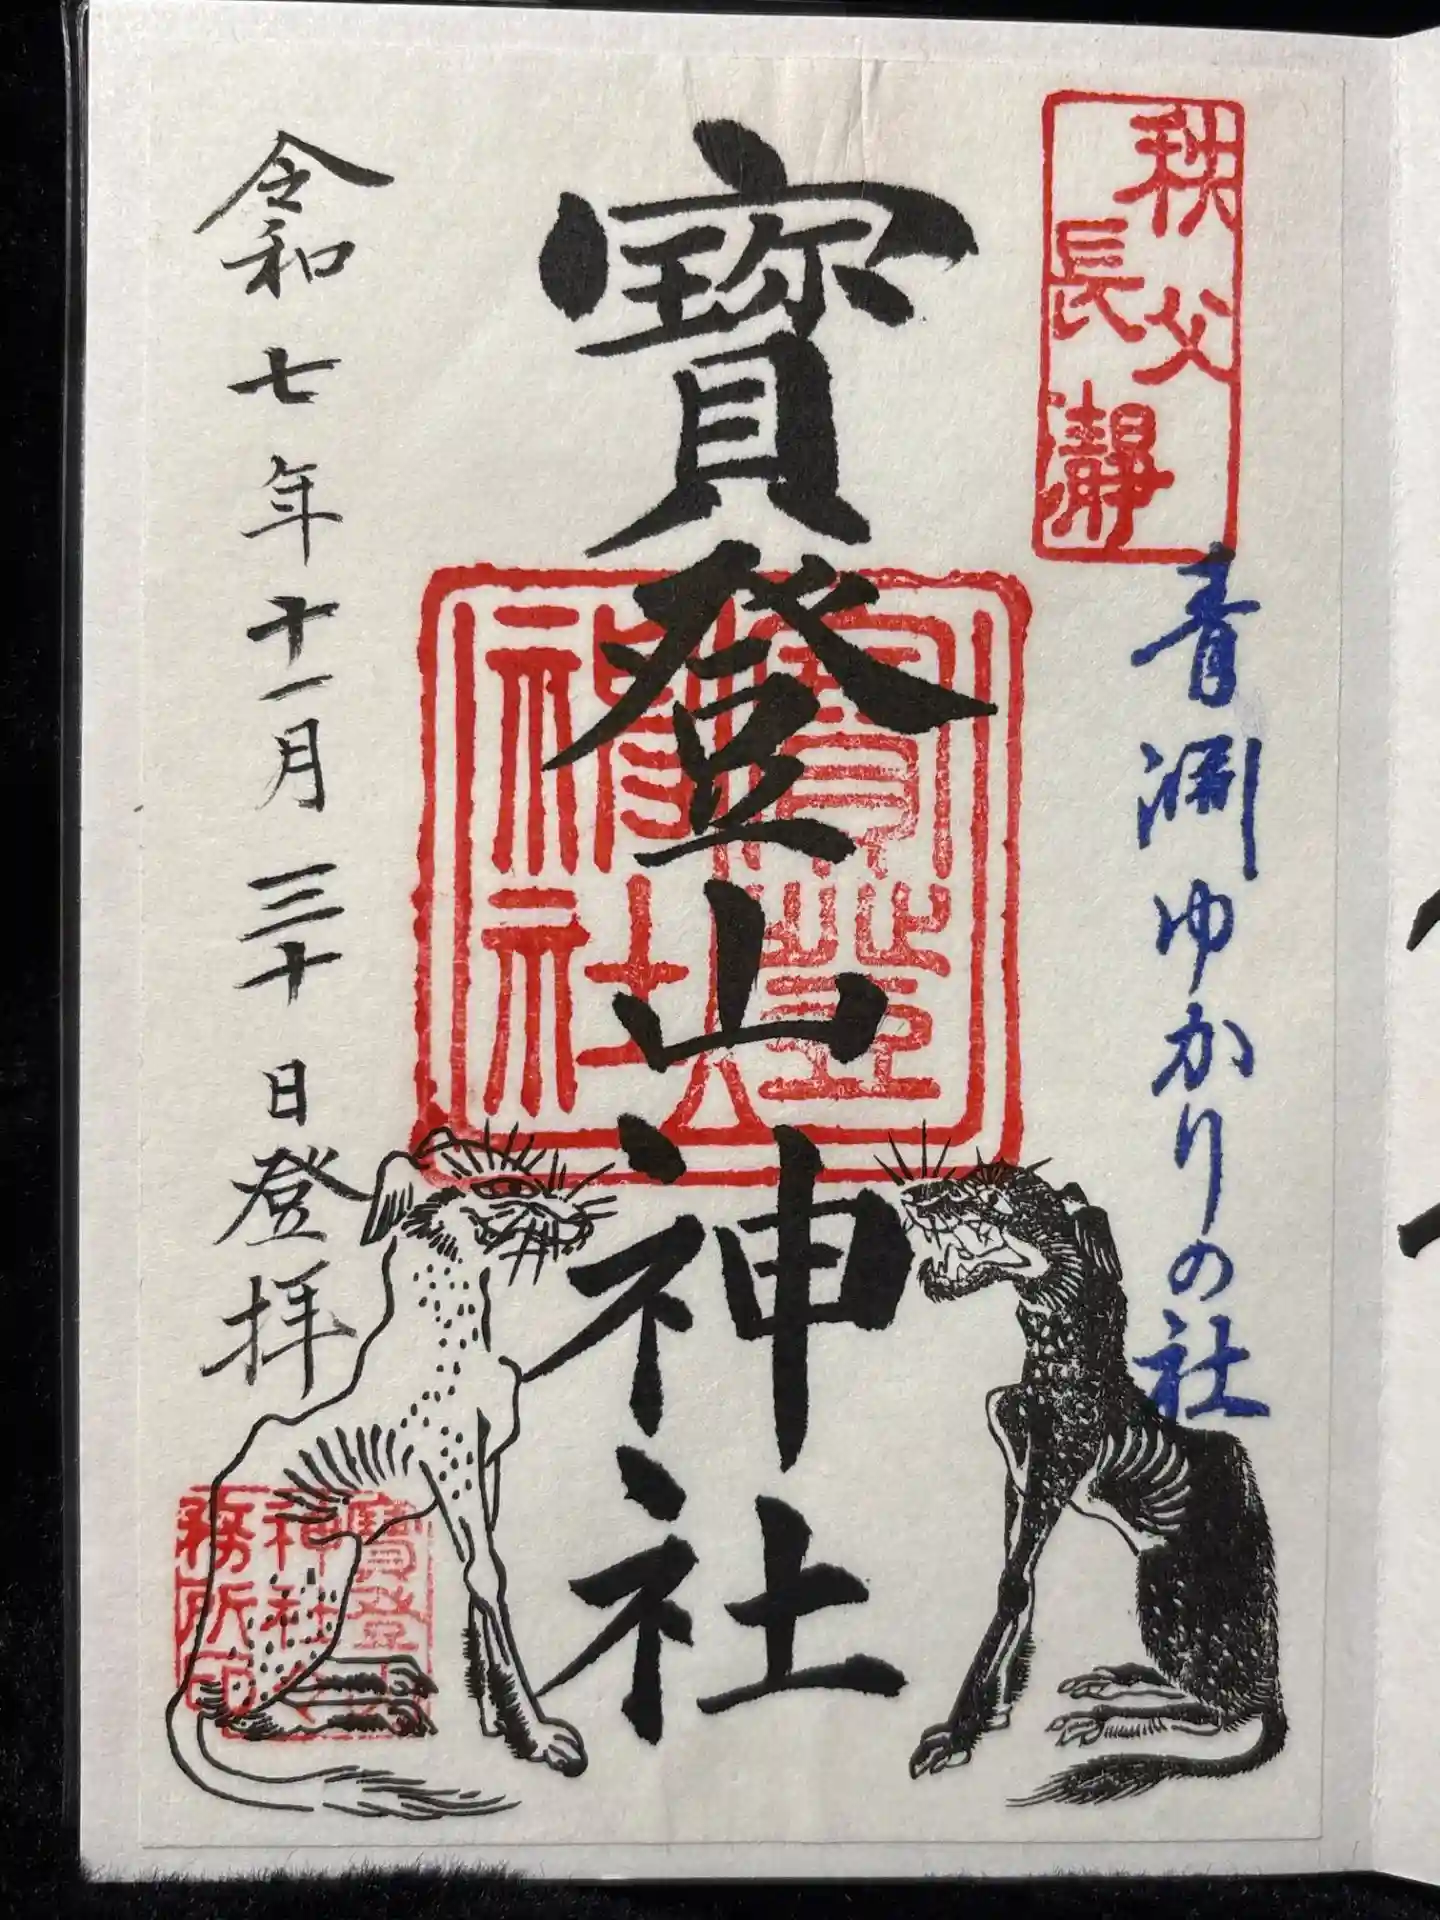 秩父
長瀞
青淵ゆかりの社
寳登山神社
寳登
山
神社
令和七年十一月三十日登拝
寳登山
神社社
務所印